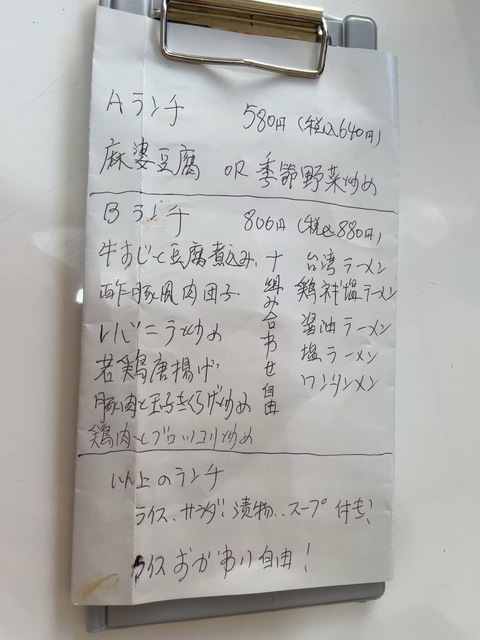 Aランチ 580円(税込640円)
麻婆豆腐 OR 季節野菜炒め
Bランチ 800円(税込880円)
牛すじと豆腐煮込み + 台湾ラーメン
酢豚風肉団子 組み合わせ自由 鶏裨塩ラーメン
レバニラ炒め 醤油ラーメン
若鶏唐揚げ 塩ラーメン
豚肉と玉子きくらげ炒め ワンタンメン
鶏肉とブロッコリ炒め
以上のランチ
ライス、サラダ、漬物、スープ 付き!
ライスおかわり自由!